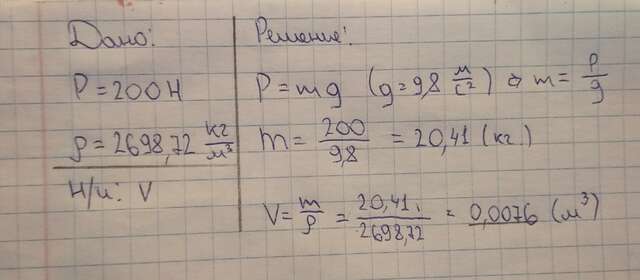 Дано:
P = 200 Н
ρ = 2698,72 кг/м³
Н/и: V
Решение:
P = mg (g = 9,8 м/с²) ⇒ m = P/g
m = 200/9,8 = 20,41 (кг.)
V = m/ρ = 20,41/2698,72 = 0,0076 (м³)